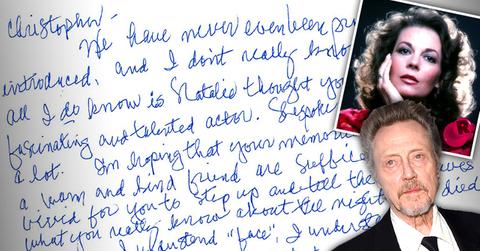 Christopher-
We have never even been pro
introduced, and I don't really know
all I do know is Natalie thought you
fascinating and talented actor. She spoke
a lot. I'm hoping that your memories
a warm and kind friend are suffic
vivid for you to step up and tell the
what you really know about the night
died
I understand "face", I unders
R